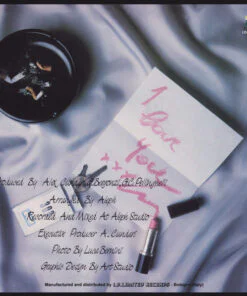 I Love
You
XXX
Produced By Alex Cundari, Bergonzi, B.C. Pellinghelli
Arranged By Aleph
Recorded And Mixed At Aleph Studio
Executive Producer A. Cundari
Photo By Luca Bernini
Graphic Design By Art Studio
Manufactured and distributed by Bologna (Italy)